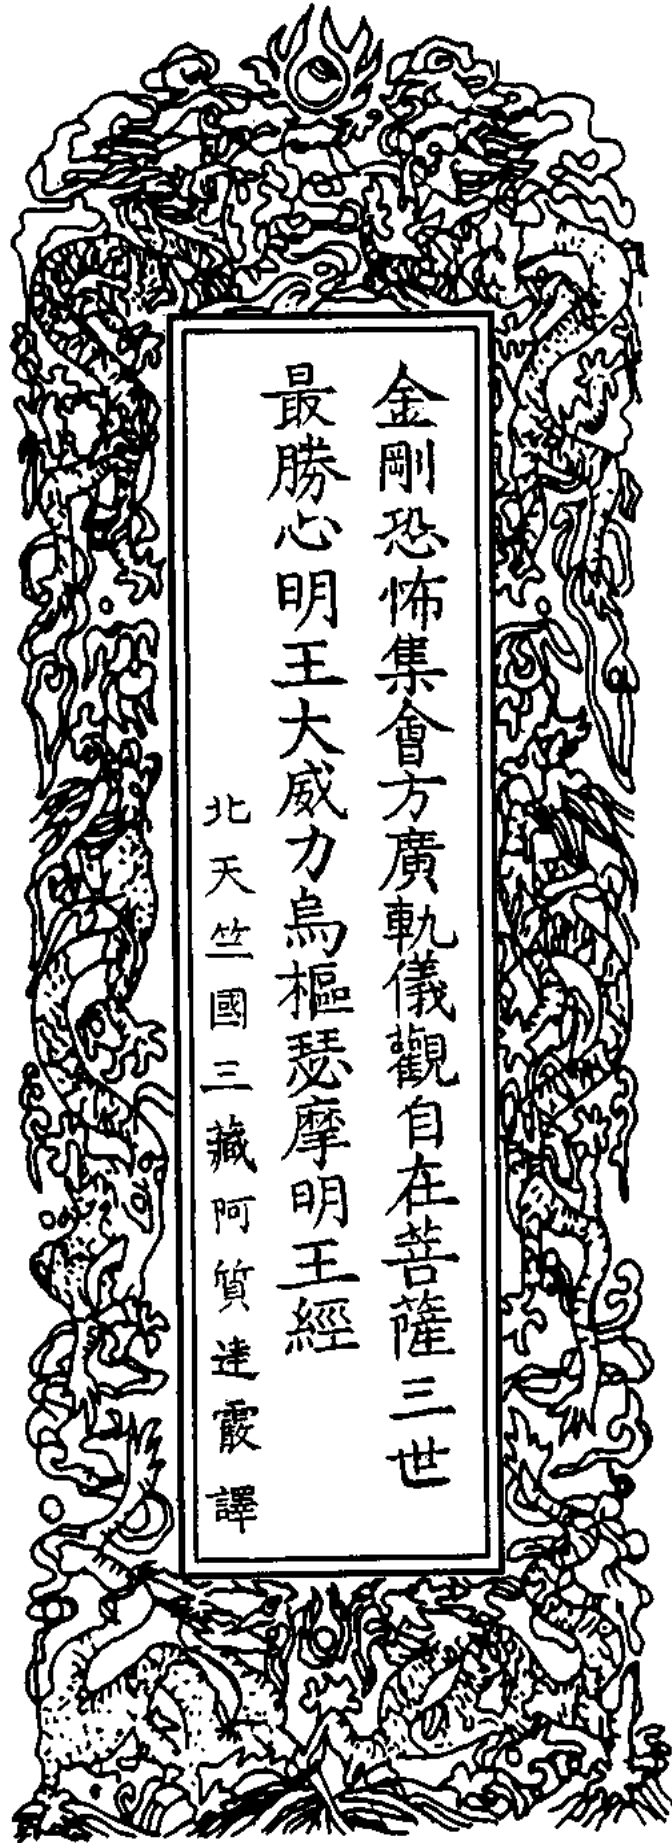 金剛恐怖集會方廣軌儀觀自在菩薩三世
最勝心明王大威力烏樞瑟摩明王經
北天竺國三藏阿質達霰譯